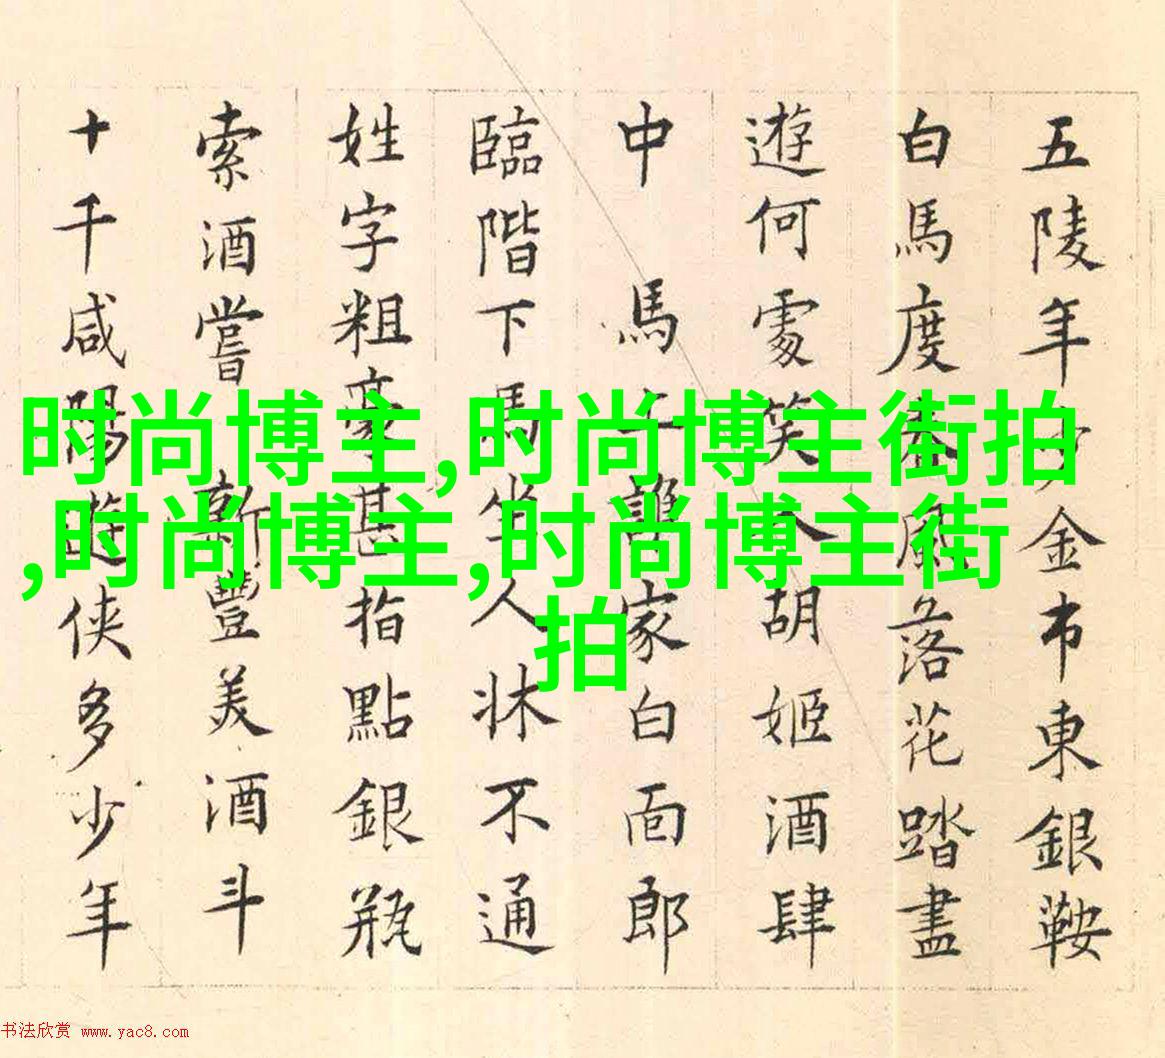 五陵年少金市東銀鞍
白馬度春風落花踏盡
遊何處笑入胡姬酒肆
中 馬上誰家白面郎
臨階下馬坐人牀不通
姓字粗豪甚指點銀瓶
索酒嘗 新豐美酒斗
十千咸陽遊俠多少年
时尚博主,时尚博主街拍
,时尚博主,时尚博主街
拍
书法欣赏 www.yac8.com